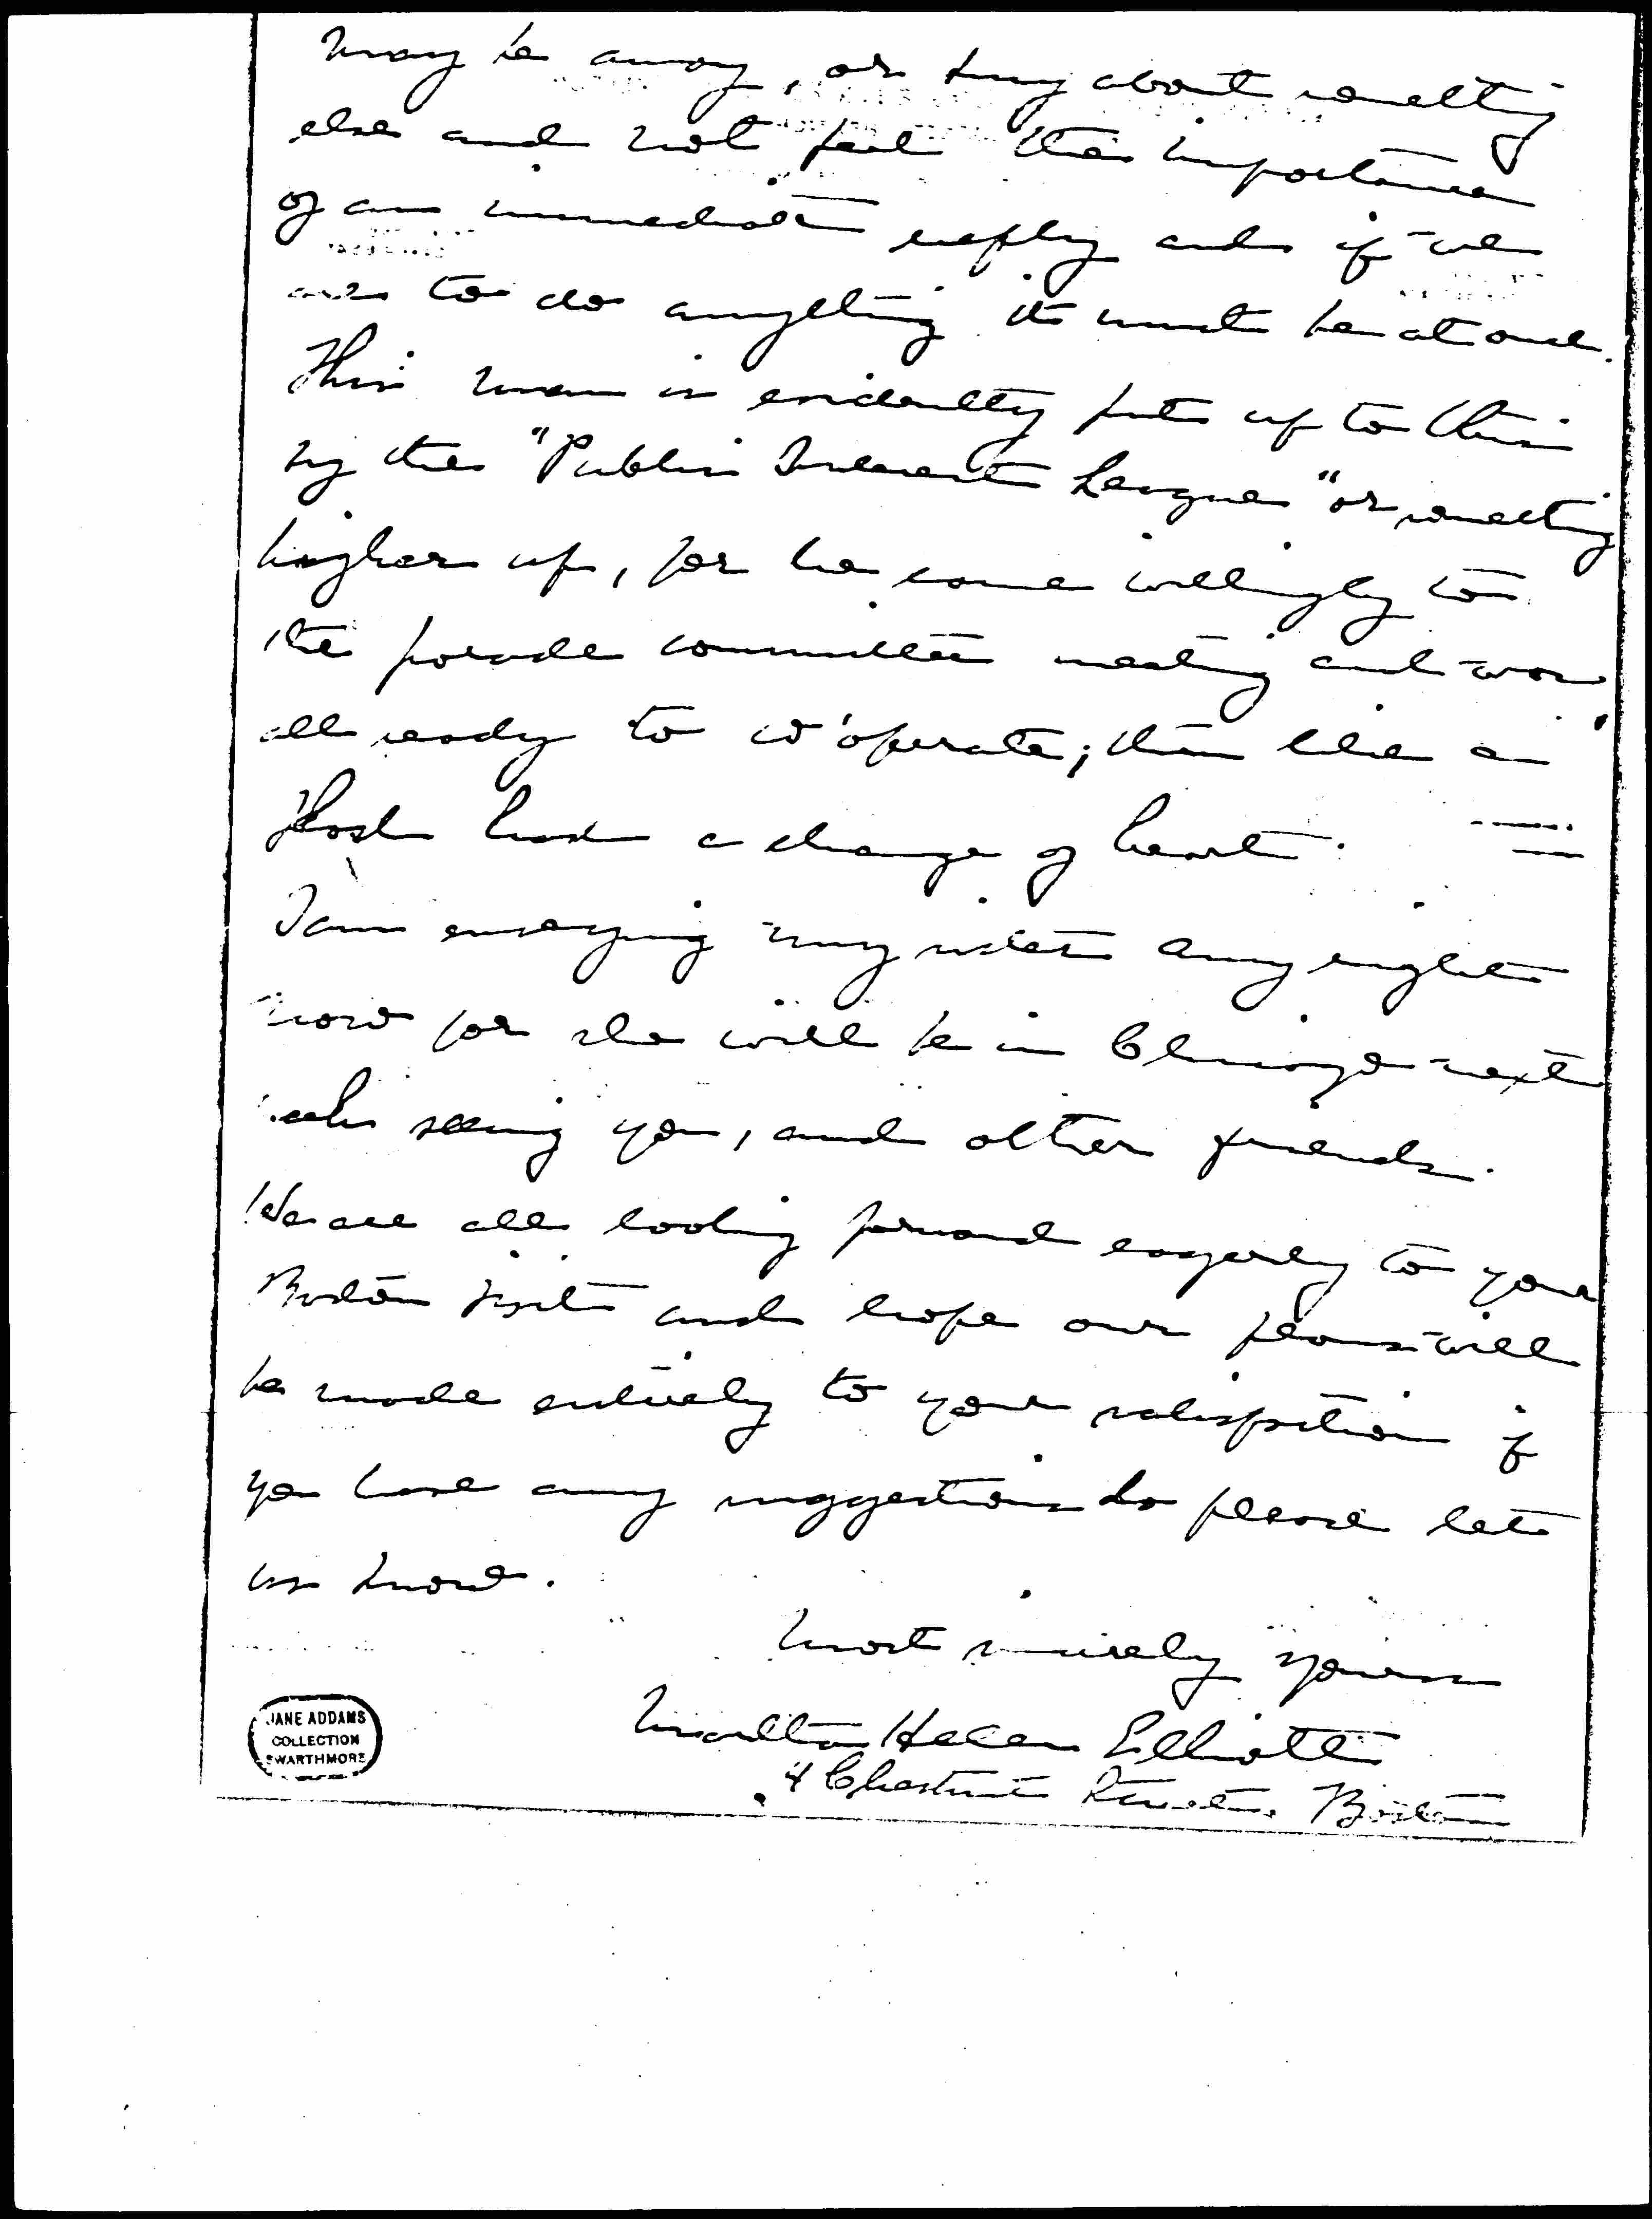 may be away, or busy about something
else and not feel the importance
of an immediate reply and if we
are to do anything it must be at once.
This man is evidently put up to this
by the "Public Interest League" or something
higher up, for he came willingly to
the parade committee meeting and was
all ready to co'operate; then like a
flash had a change of heart.
I am envying my sister Amy right
now for she will be in Chicago next
week seeing you, and other friends.
We are all looking forward eagerly to your
Boston visit and hope our plans will
be made entirely to your satisfaction if
you have any suggestions do please let
us know.
Most sincerely yours
Martha Helen Elliott
4 Chestnut Street. Boston
JANE ADDAMS
COLLECTION
SWARTHMORE